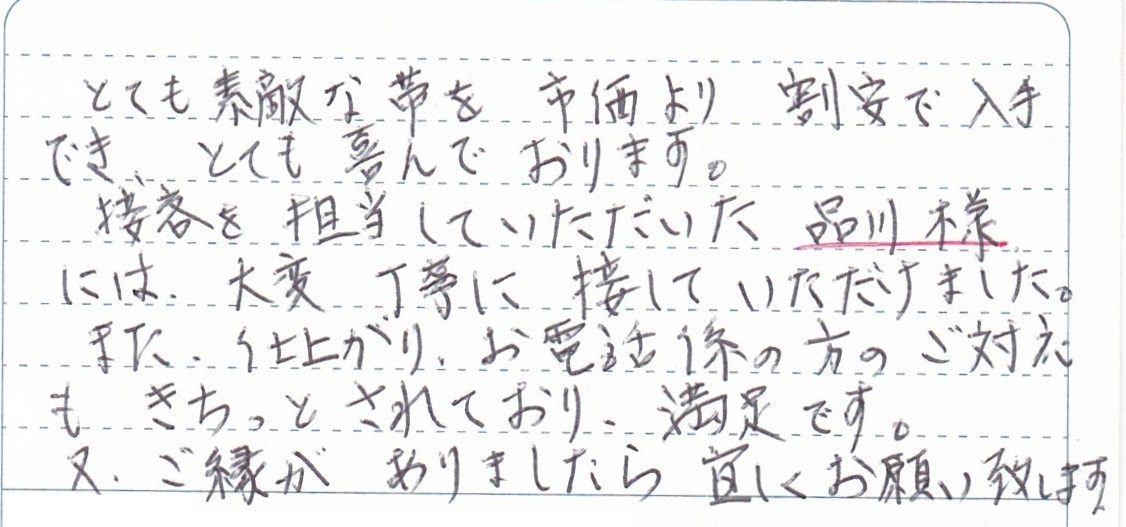 とても素敵な帯を 市価より 割安で入手
でき、とても喜んでおります。
接客を担当していただいた 品川様
には、大変 丁寧に 接して いただけました。
また、仕上がり、お電話係の方の ご対応
も きちっと されており、満足です。
又、ご縁が ありましたら 宜しくお願い致します